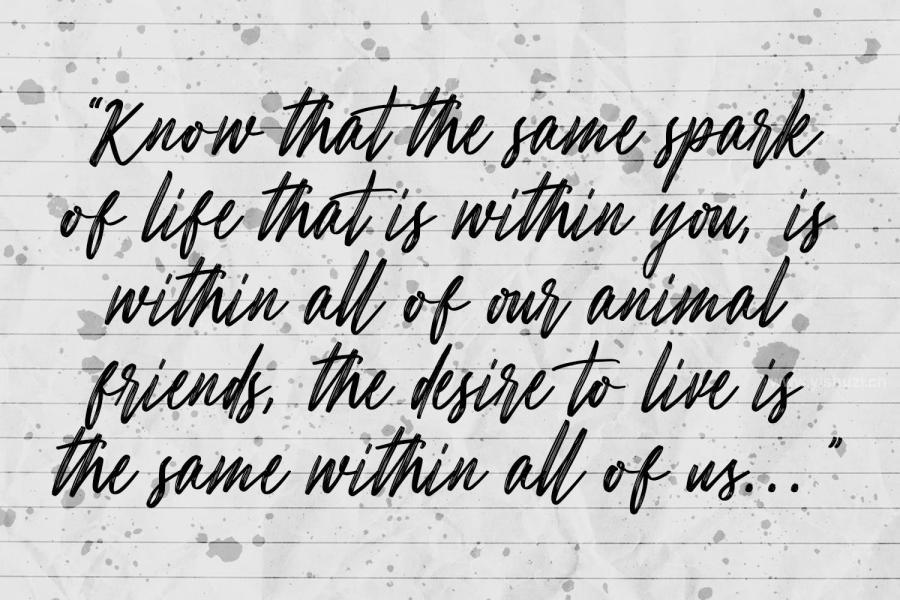 “Know that the same spark
of life that is within you, is
within all of our animal
friends, the desire to live is
the same within all of us... ”